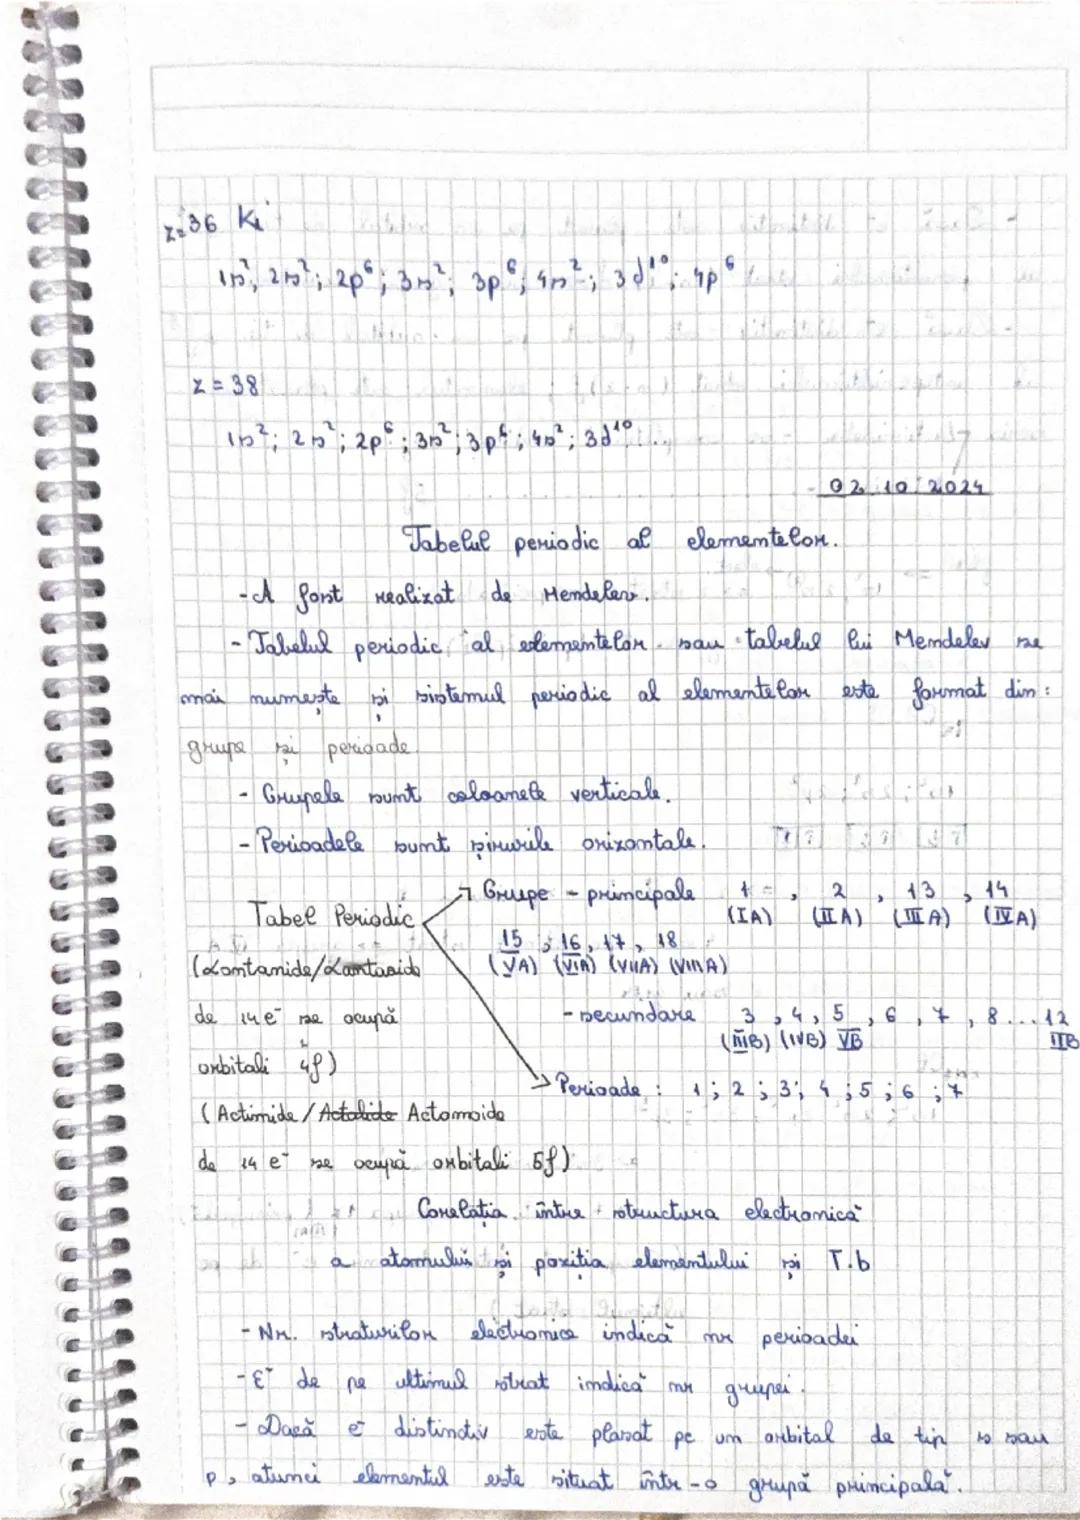 z=36 Kr
1s²; 2s²; 2p⁶; 3s²; 3p⁶; 4s²; 3d¹⁰; 4p⁶
z = 38
1s²; 2s²; 2p⁶; 3s²; 3p⁶; 4s²; 3d¹⁰...
02.10.2024
Tabelul periodic al elementelor.
- A fost realizat de Mendelev.
- Tabelul periodic al elementelor sau tabelul lui Mendelev se
mai numește și sistemul periodic al elementelor este format din:
grupe și perioade.
- Grupele sunt coloanele verticale.
- Perioadele sunt șirurile orizontale.
Grupe - principale 1, 2, 13, 14
Tabel Periodic (IA) (IIA) (IIIA) (IVA)
15, 16, 17, 18
(Lantanide/ (VA) (VIA) (VIIA) (VIIIA)
de 14 e⁻ se ocupă - secundare 3, 4, 5, 6, 7, 8...12
(IIIB) (IVB) VB IIB
orbitali 4f)
Perioade: 1; 2; 3; 4; 5; 6; 7
(Actinide/Actolide Actomoide
de 14 e⁻ se ocupă orbitali 5f)
Corelația între structura electronică
a atomului și poziția elementului și T.b
- Nr. straturilor electronice indică nr perioadei
- E⁻ de pe ultimul strat indică nr grupei.
- Dacă e⁻ distinctiv este plasat pe un orbital de tip s sau
p, atunci elementul este situat într-o grupă principală.